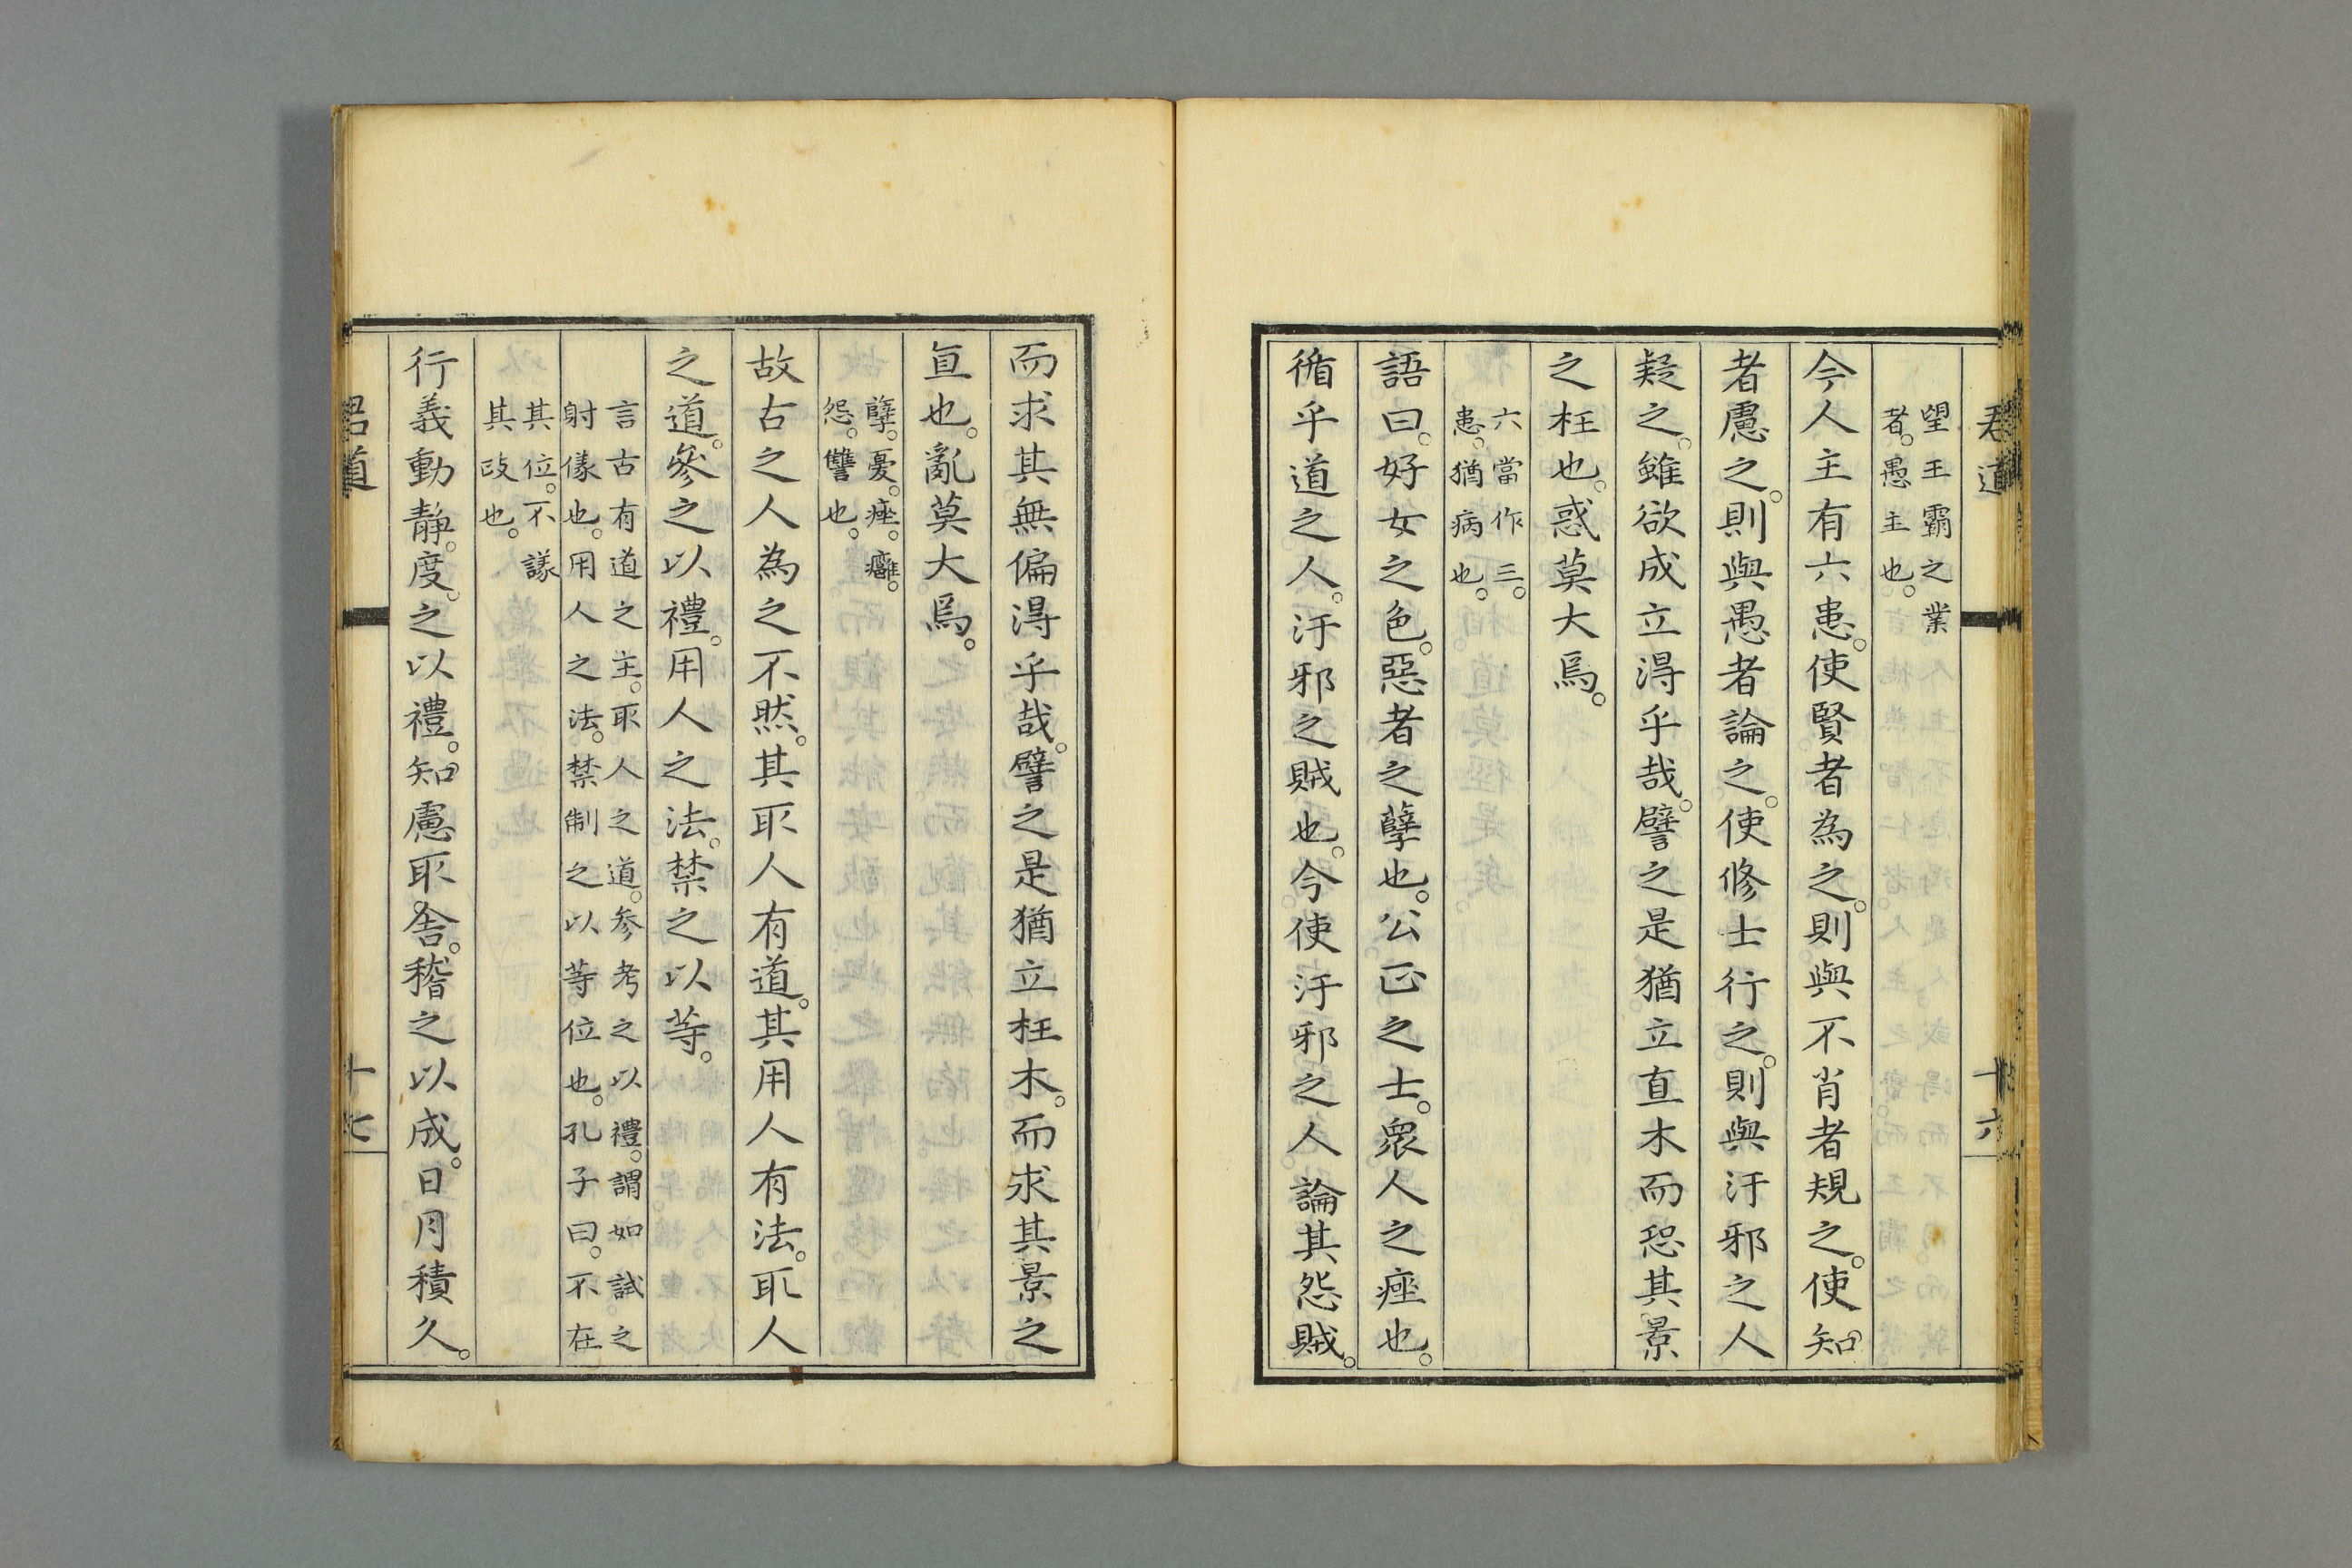 君道
十六
望王霸之業
者。愚主也。
今人主有六患。使賢者為之。則與不肖者規之。使知
者慮之。則與愚者論之。使修士行之。則與汙邪之人
疑之。雖欲成立得乎哉。譬之是猶立直木而恐其景
之枉也。惑莫大焉。
六當作三。
患。猶病也。
語曰。好女之色。惡者之孽也。公正之士。衆人之痤也。
循乎道之人。汙邪之賊也。今使汙邪之人論其怨賊。
而求其無偏得乎哉。譬之是猶立枉木。而求其景之
直也。亂莫大焉。
孽。憂。痤。癰。
怨。讐也。
故古之人為之不然。其取人有道。其用人有法。取人
之道。參之以禮。用人之法。禁之以等。
言古有道之主。取人之道。參考之以禮。謂如試之
射儀也。用人之法。禁制之以等位也。孔子曰。不在
其位。不謀
其政也。
行義動靜。度之以禮。知慮取舍。稽之以成。日月積久。
君道
十七